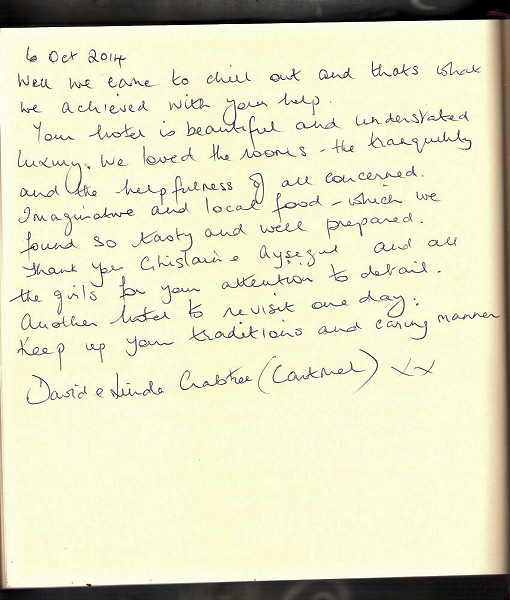 6 Oct 2014
Well we came to chill out and thats what
we achieved with your help.
Your hotel is beautiful and understated
luxury. We loved the rooms - the tranquility
and the helpfulness of all concerned.
Imaginative and local food - which we
found so tasty and well prepared.
Thank you Ghislaine Ayşegul and all
the girls for your attention to detail.
Another hotel to revisit one day.
Keep up your traditions and caring manner
David e Linda Crabtree (Cartmel) xx